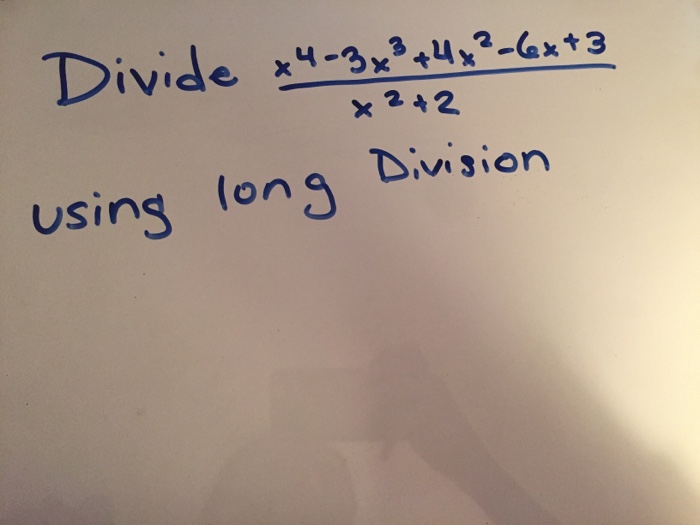 Divide x⁴-3x³+4x²-6x+3
x²+2
using long Division